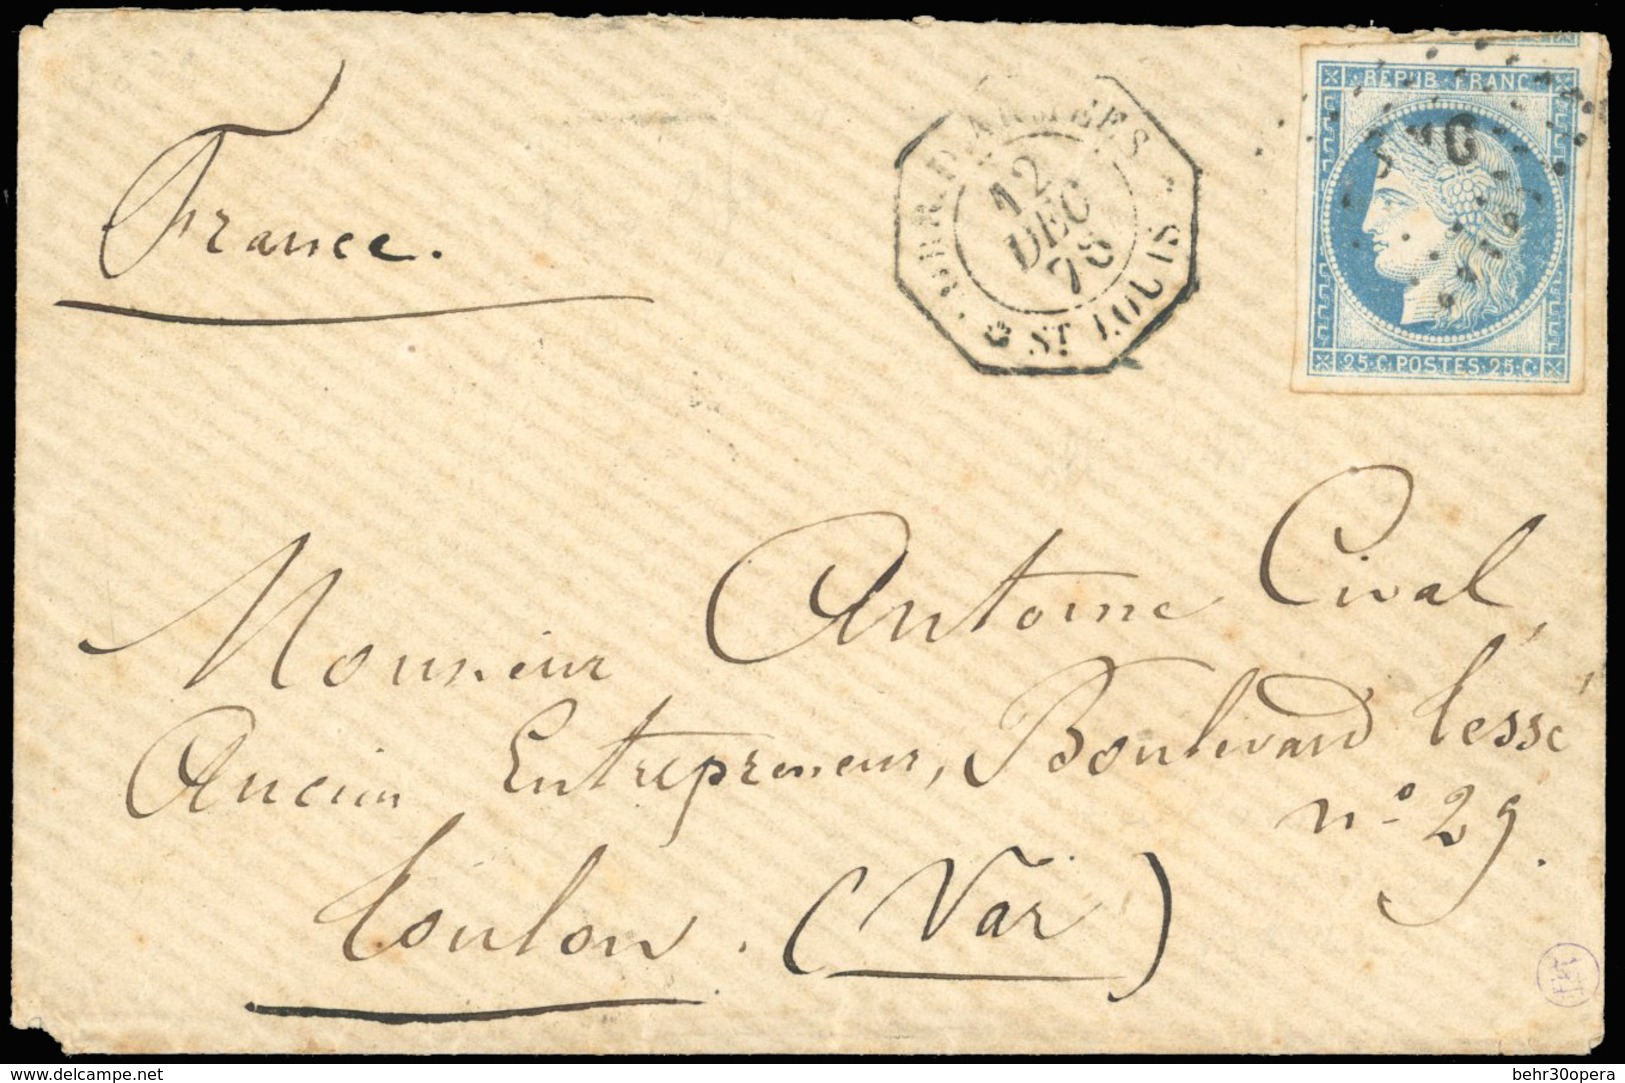 REPUB. FRANC
CORR. D. ARMÉES
12
DEC
78
ST LOUIS
25.C.POSTES.25.C
France.
Monsieur Antoine Cival,
Ancien Entrepreneur, Boulevard Tessé
n° 29.
Toulon. (Var)
delcampe.net
behr30opera